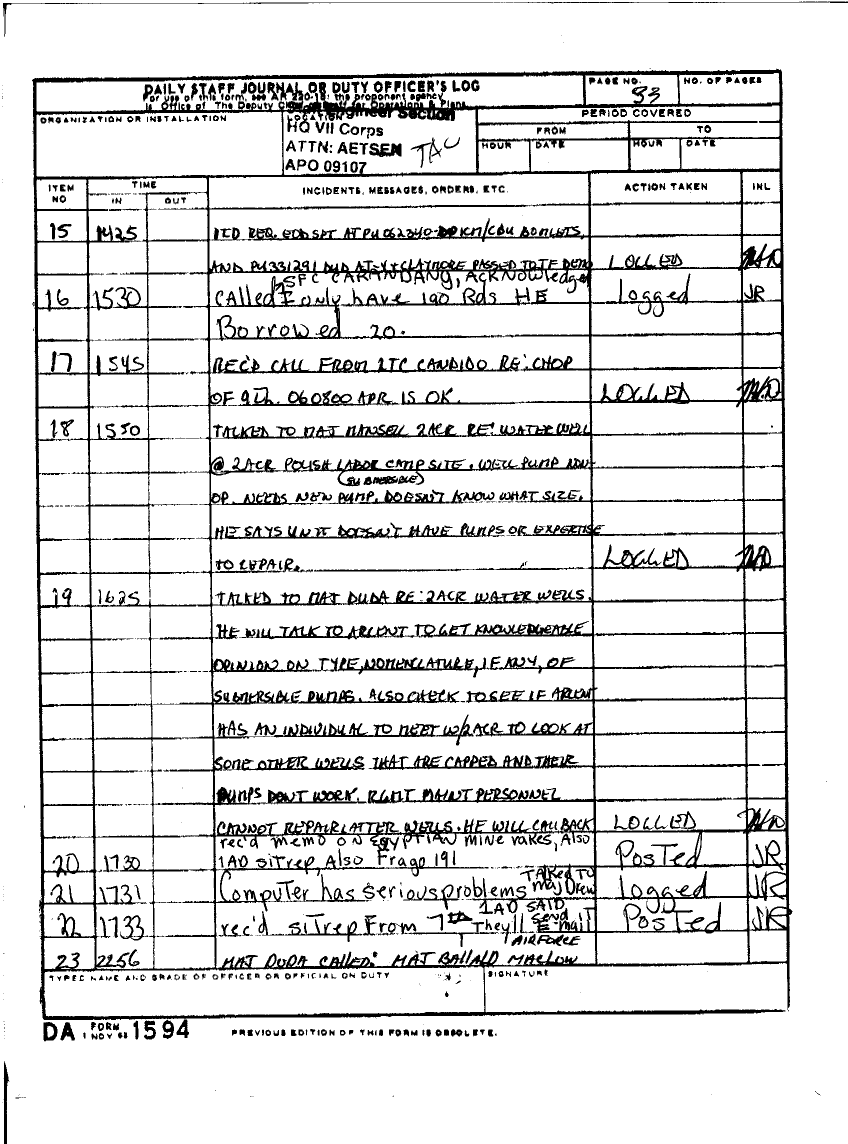 DAILY STAFF JOURNAL OR DUTY OFFICER'S LOG
For use of this form, see AR 220-15; the proponent agency
is Office of The Deputy Chief of Staff for Operations & Plans
PAGE NO. 33
NO. OF PAGES
ORGANIZATION OR INSTALLATION
LOCATION
Engineer Section
HQ VII Corps
ATTN: AETSEN TAC
APO 09107
PERIOD COVERED
FROM TO
HOUR DATE HOUR DATE
ITEM NO TIME INCIDENTS, MESSAGES, ORDERS, ETC. ACTION TAKEN INL
IN OUT
15 1425 1ID REQ EOD SPT AT PU062340 KM/CBU BOMLETS,
AND PU331291 CLAYMORE PASSED TO TF DEMO LOGGED
SFC CARANDANG, Acknowledged
16 1530 CAlled I only hAve 190 Rds HE logged JR
Borrowed 20.
17 1545 REC'D CALL FROM LTC CANDIDO RE: CHOP
OF 9th. 060800 APR IS OK. LOGGED
18 1550 TALKED TO MAJ MANSELL 2ACR RE: WATER WELL
@ 2ACR POLISH LABOR CAMP SITE. WELL PUMP NON-
(SUBMERSIBLE)
OP. NEEDS NEW PUMP. DOESN'T KNOW WHAT SIZE.
HE SAYS UNIT DOESN'T HAVE PUMPS OR EXPERTISE
TO REPAIR. LOGGED
19 1625 TALKED TO MAJ DUDA RE: 2ACR WATER WELLS.
HE WILL TALK TO ARCENT TO GET KNOWLEDGEABLE
OPINION ON TYPE, NOMENCLATURE, IF ANY, OF
SUBMERSIBLE PUMPS. ALSO CHECK TO SEE IF ARCENT
HAS AN INDIVIDUAL TO MEET W/2ACR TO LOOK AT
SOME OTHER WELLS THAT ARE CAPPED AND THEIR
PUMPS DONT WORK. RGMT MAINT PERSONNEL
CANNOT REPAIR LATTER WELLS. HE WILL CALL BACK LOGGED
rec'd memo on Egyptian mine rakes, Also
20 1730 1AD sitrep, Also Frago 191 Posted JR
21 1731 Computer has serious problems TAlked TO maj Drew logged JR
22 1733 rec'd sitrep From 7th 1AD SAID They'll send IT E-mail Posted JR
AIRFORCE
23 2256 MAJ DUDA CALLED: MAJ BALLALD MACLOW
TYPED NAME AND GRADE OF OFFICER OR OFFICIAL ON DUTY SIGNATURE
DA FORM 1 NOV 62 1594 PREVIOUS EDITION OF THIS FORM IS OBSOLETE.